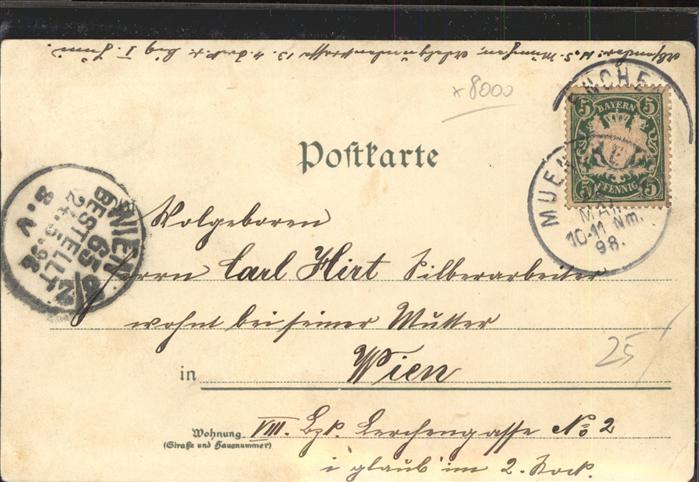 x 8000
Postkarte
BAYERN
5 5
5 PFENNIG 5
MUENCHEN
MAI
10-11 Nm.
98.
WIEN 8/2
65
BESTELLT
24.5.98
8.V
Wolgeboren
Herrn Carl Hirt Silberarbeiter
wohnt bei seiner Mutter
in Wien
Wohnung VIII. Bzk. Lerchengasse No 2
(Straße und Hausnummer)
i glaub im 2. Stock.
25